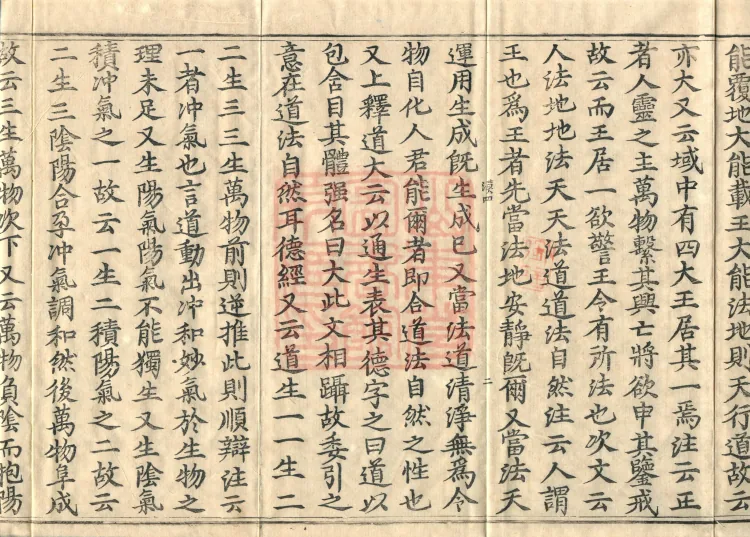 能覆地大能載王大能法地則天行道故云
亦大又云域中有四大王居其一焉注云正
者人靈之主萬物繫其興亡將欲申其鑒戒
故云而王居一欲警王令有所法也次文云
人法地地法天天法道道法自然注云人謂
王也爲王者先當法地安靜旣爾又當法天
運用生成旣生成已又當法道清淨無爲令
物自化人君能爾者即合道法自然之性也
又上釋道大云以通生表其德字之曰道以
包含目其體强名曰大此文相躡故委引之
意在道法自然耳德經又云道生一一生二
二生三三生萬物前則逆推此則順辯注云
一者冲氣也言道動出冲和妙氣於生物之
理未足又生陽氣陽氣不能獨生又生陰氣
積冲氣之一故云一生二積陽氣之二故云
二生三陰陽合孕冲氣調和然後萬物阜成
故云三生萬物次下又云萬物負陰而抱陽